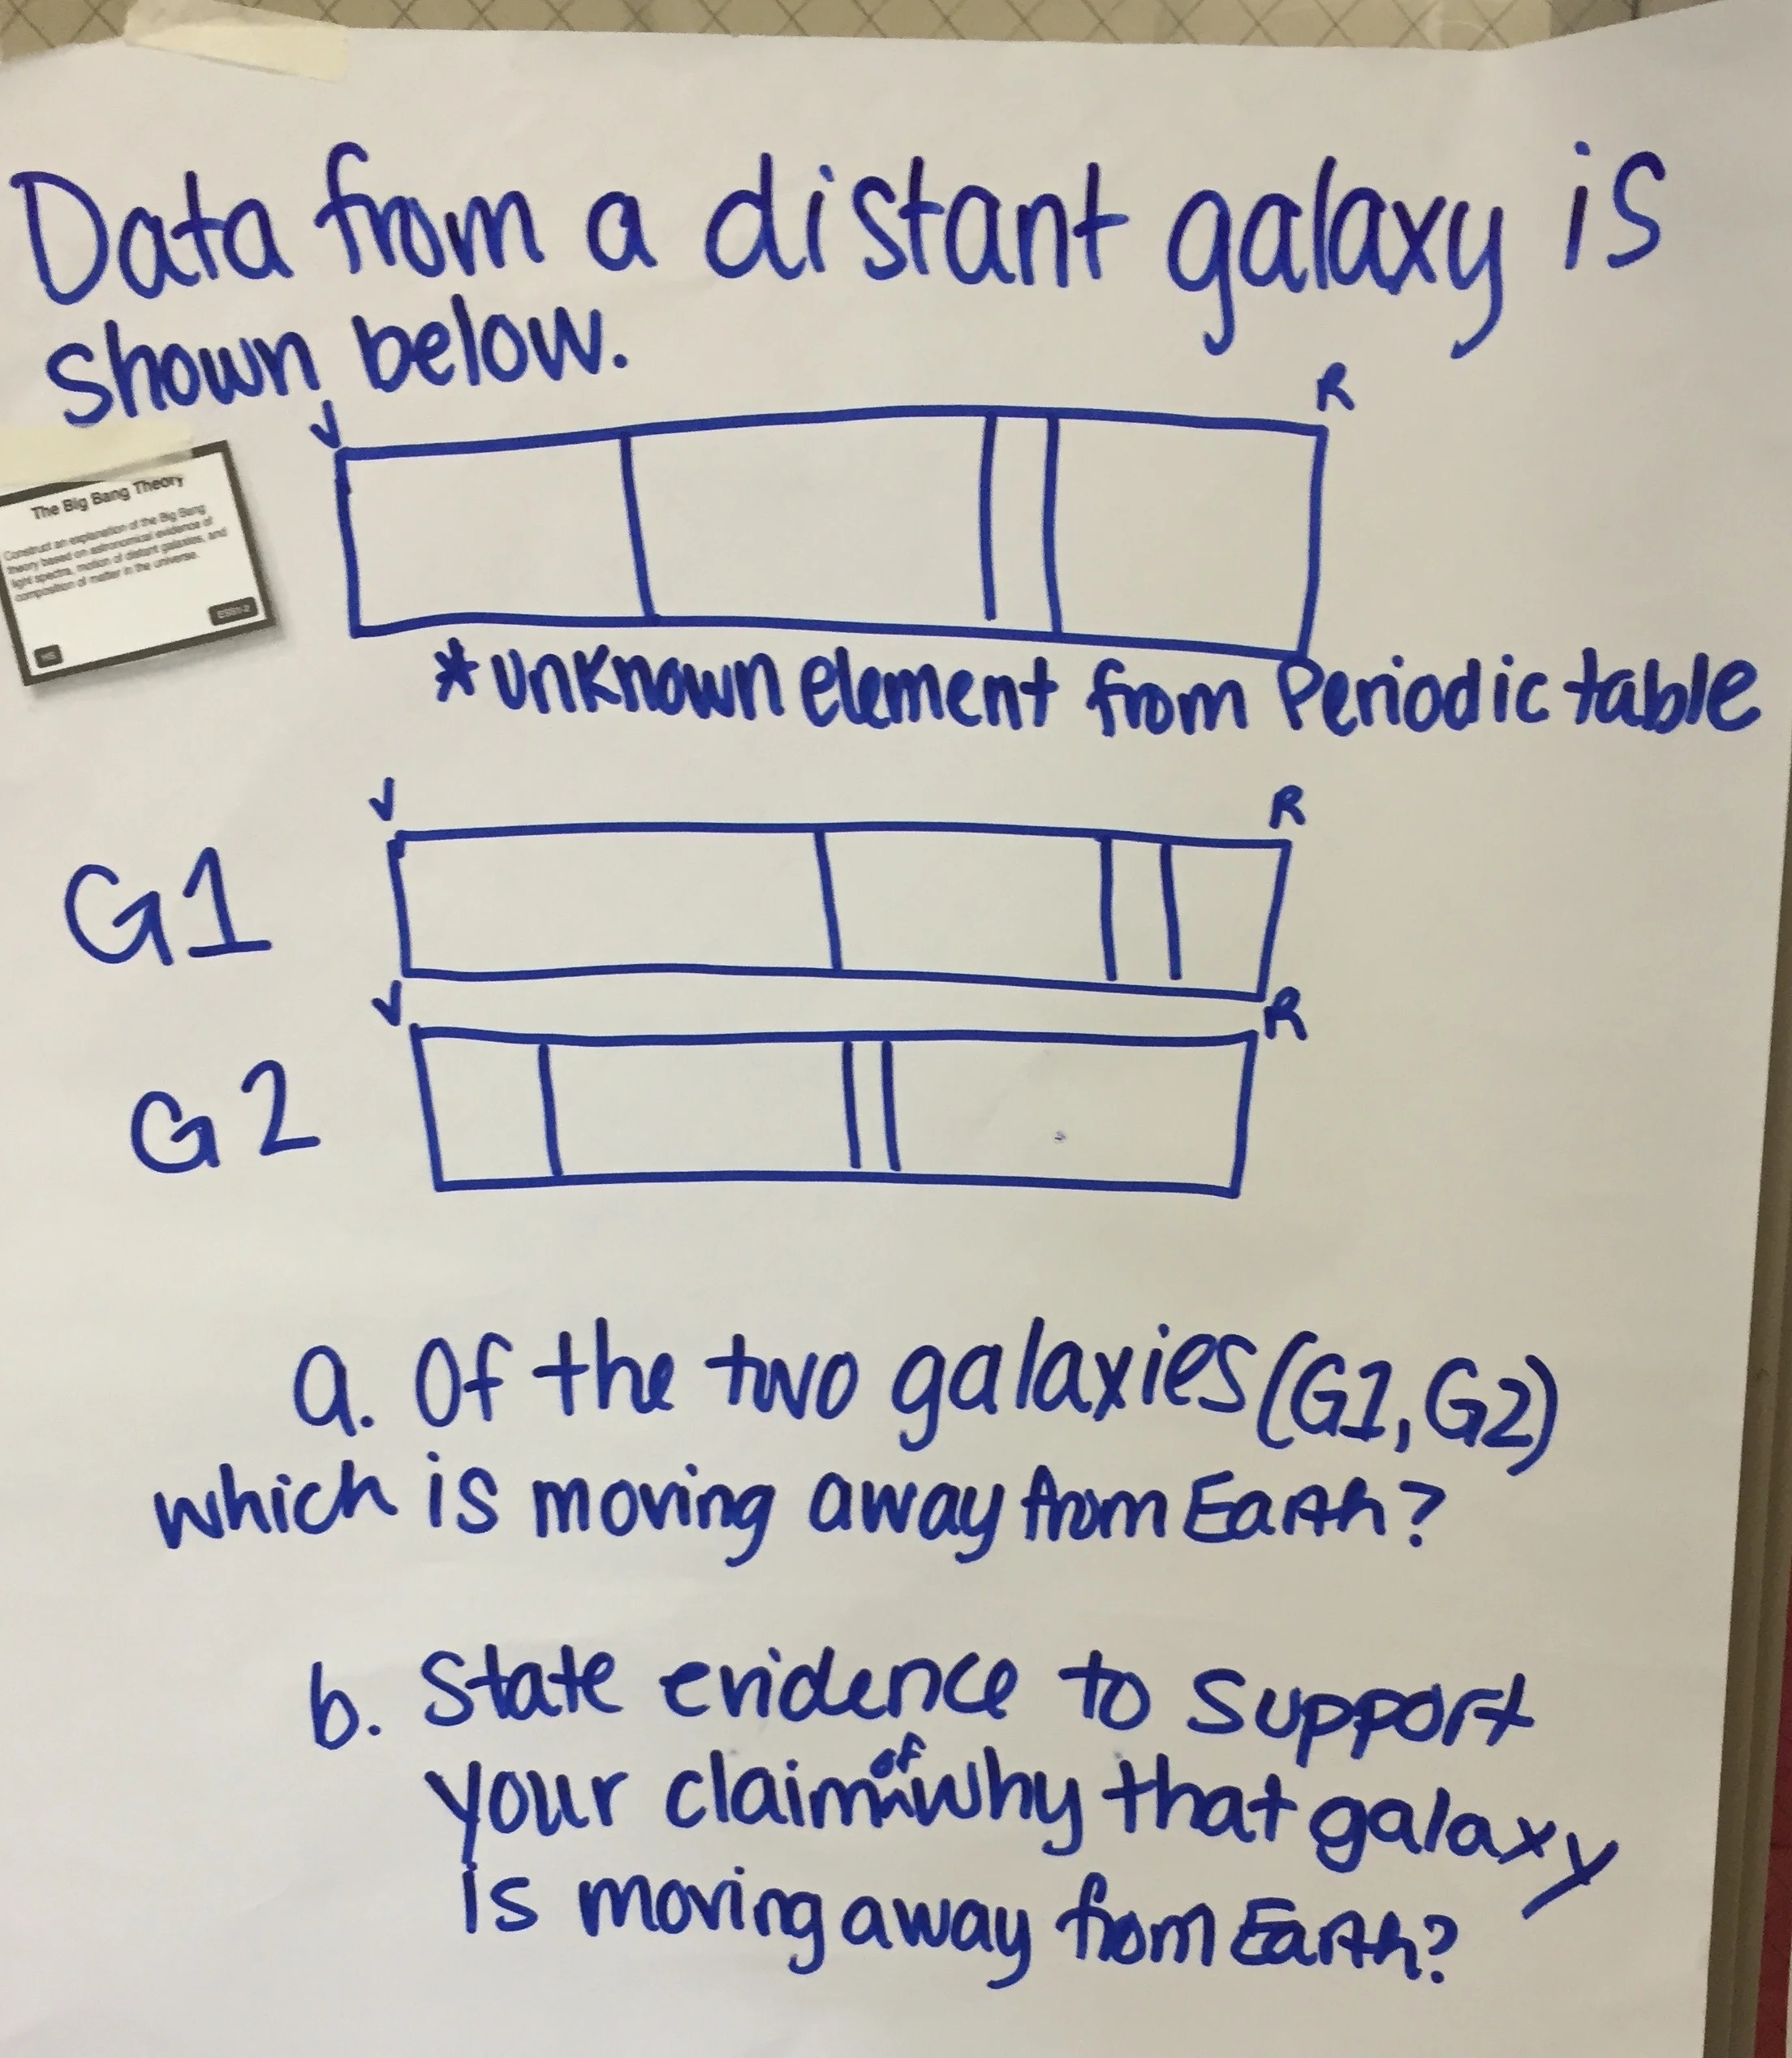 Data from a distant galaxy is
shown below.
V
R
The Big Bang Theory
Construct an explanation of the Big Bang
theory based on astronomical evidence of
light spectra, motion of distant galaxies, and
composition of matter in the universe.
HS
ESS1-2
*unknown element from Periodic table
V
R
G1
V
R
G2
a. Of the two galaxies (G1, G2)
which is moving away from Earth?
b. State evidence to support
your claim of why that galaxy
is moving away from Earth?